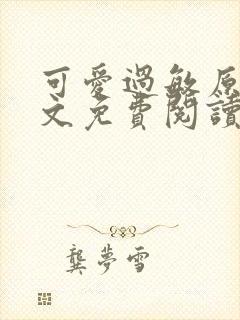 可愛過敏原
文免費閱讀
龔夢雪